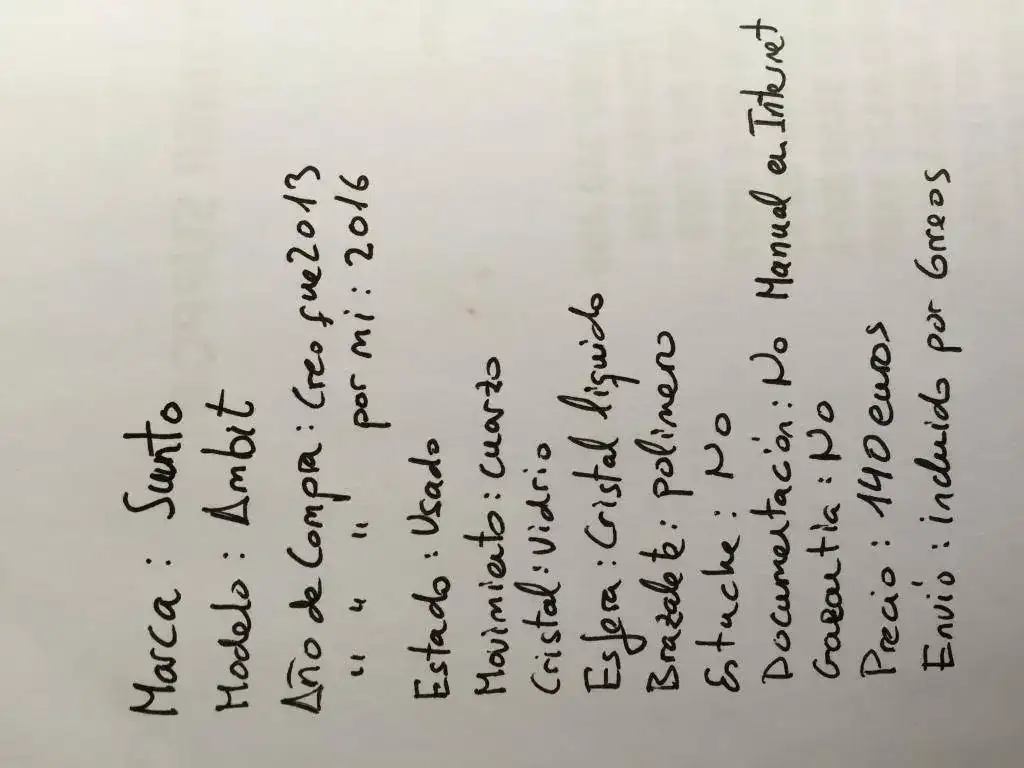 Marca : Sunto
Modelo : Ambit
Año de Compra : Creo fue 2013
" " " por mi : 2016
Estado : Usado
Movimiento : cuarzo
Cristal : vidrio
Esfera : Cristal liquido
Brazalete : polimero
Estuche : No
Documentación : No Manual en Internet
Garantia : No
Precio : 140 euros
Envió : incluido por Correos